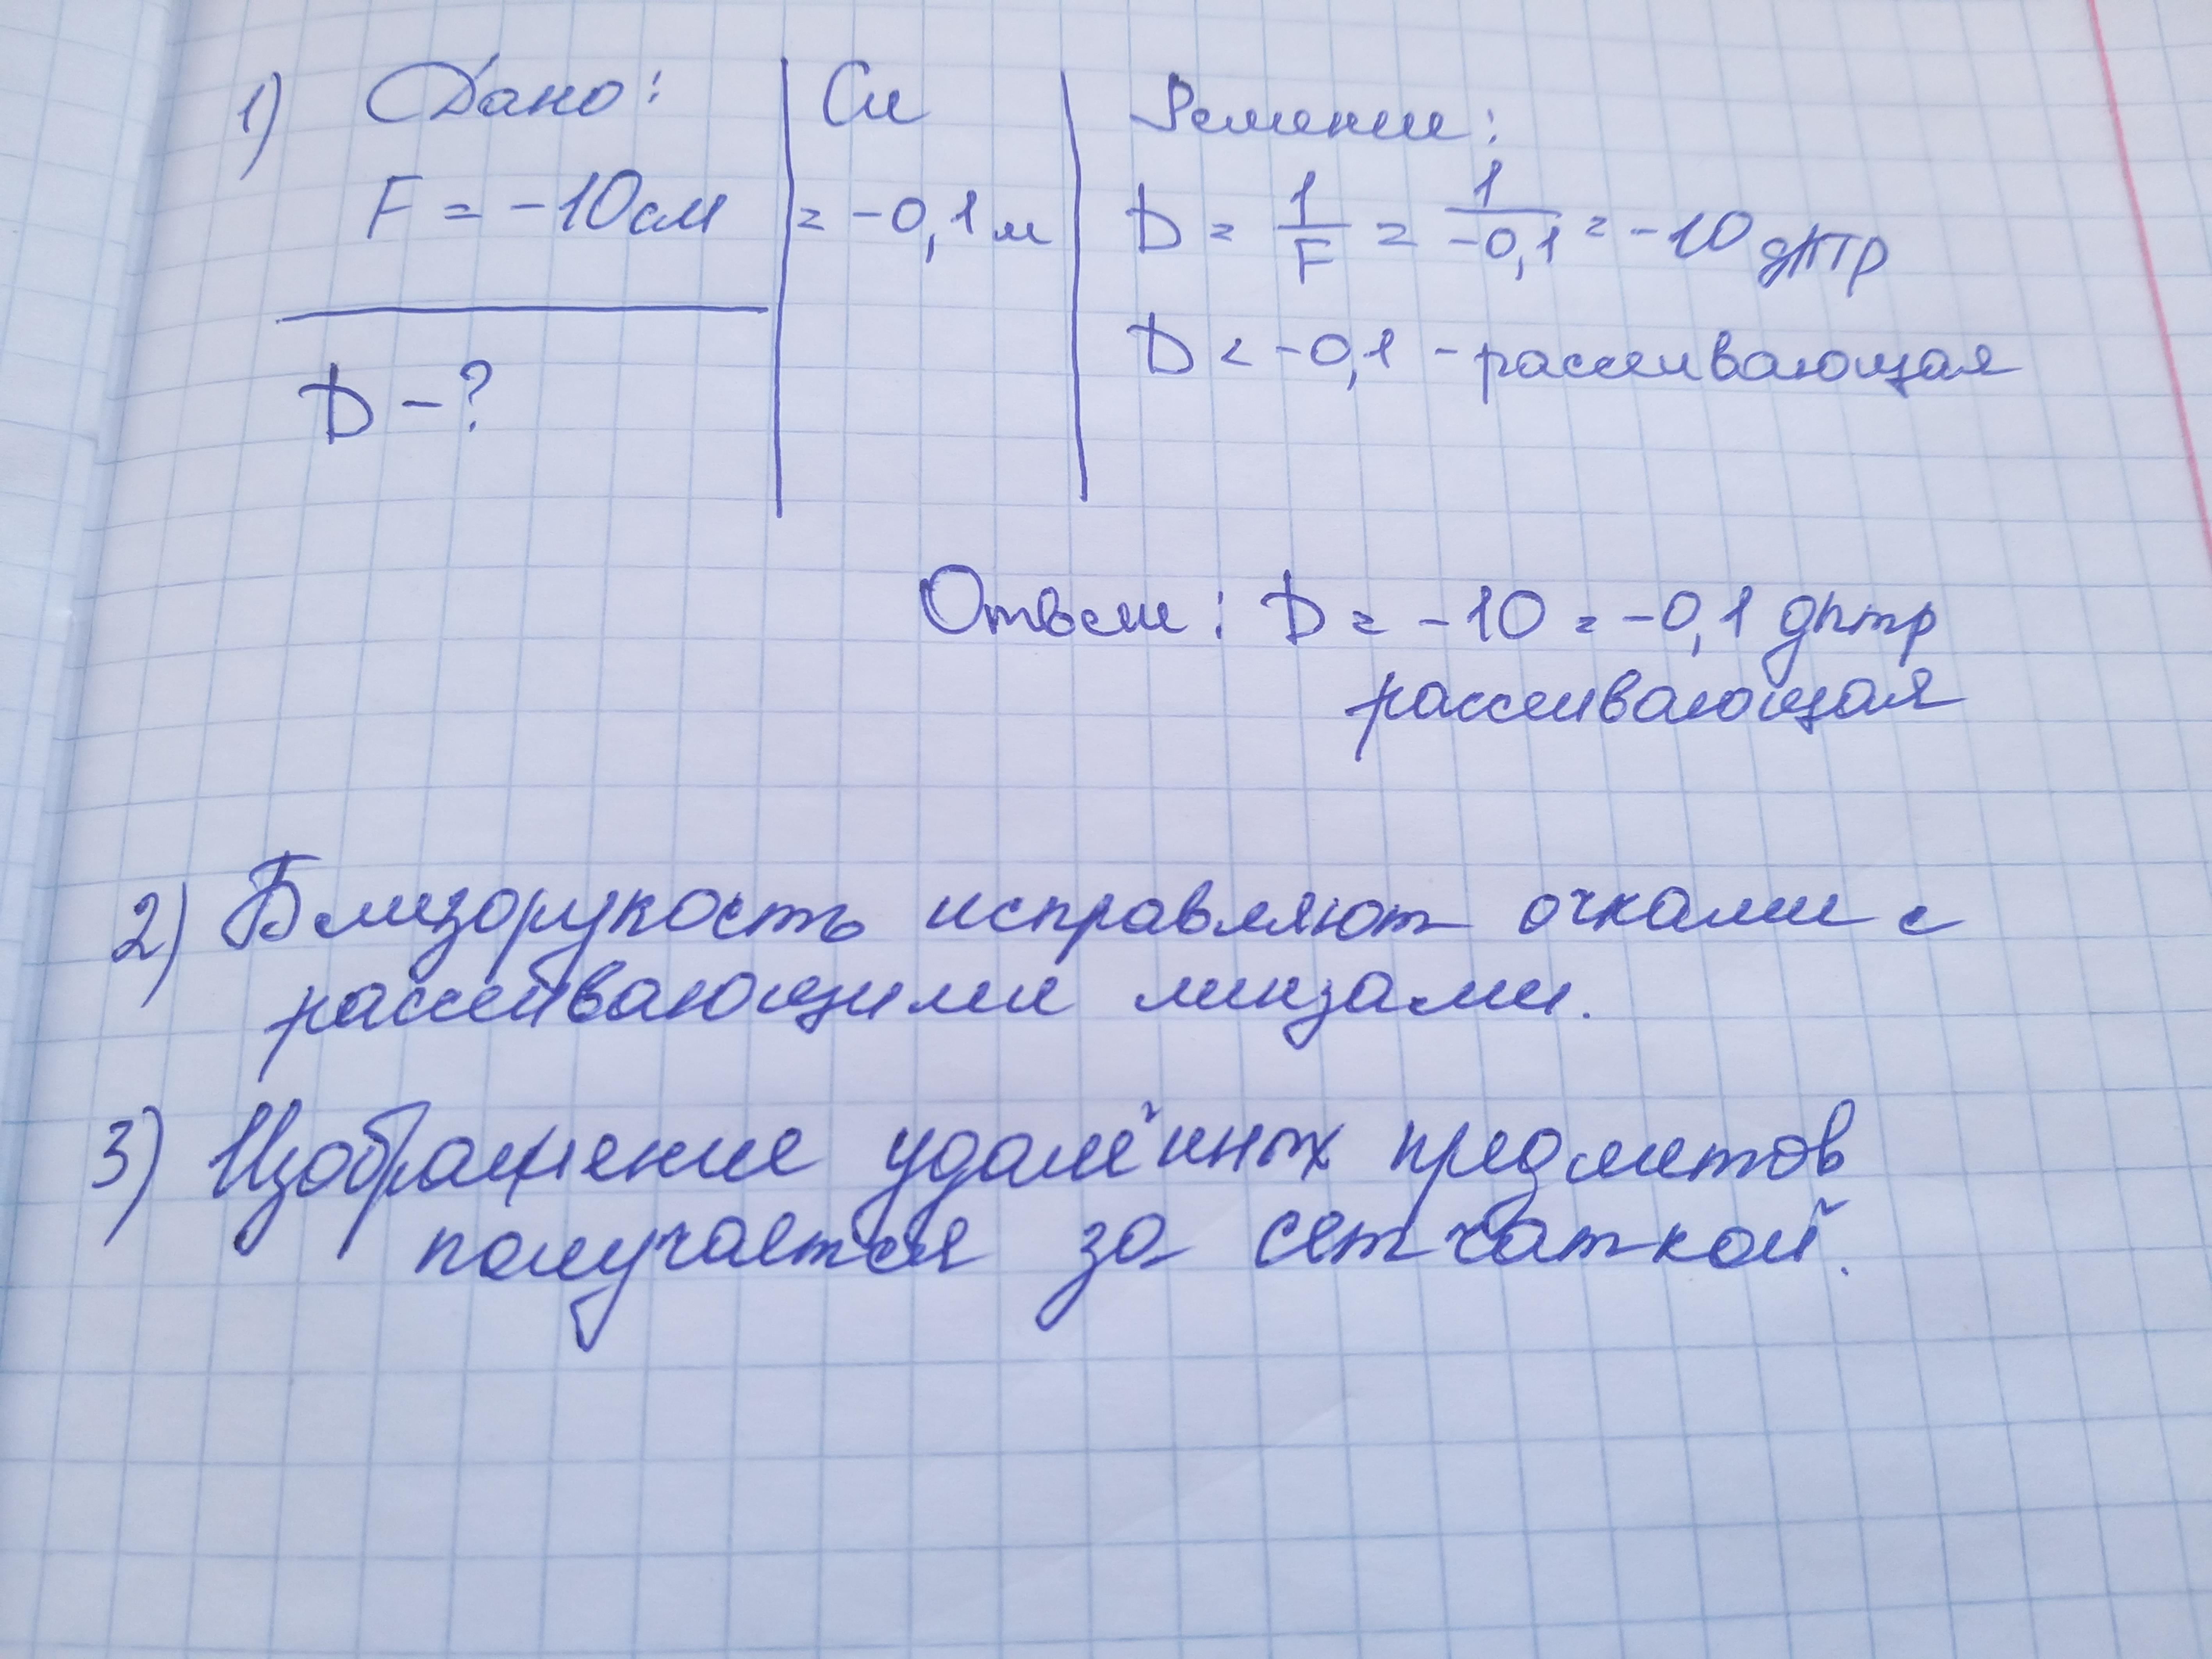 1) Дано: Си Решение:
F = -10см = -0,1м D = 1/F = 1/-0,1 = -10 дптр
D - ? D < -0,1 - рассеивающая
Ответ: D = -10 = -0,1 дптр
рассеивающая
2) Близорукость исправляют очками с
рассеивающими линзами.
3) Изображение удалённых предметов
получается за сетчаткой.